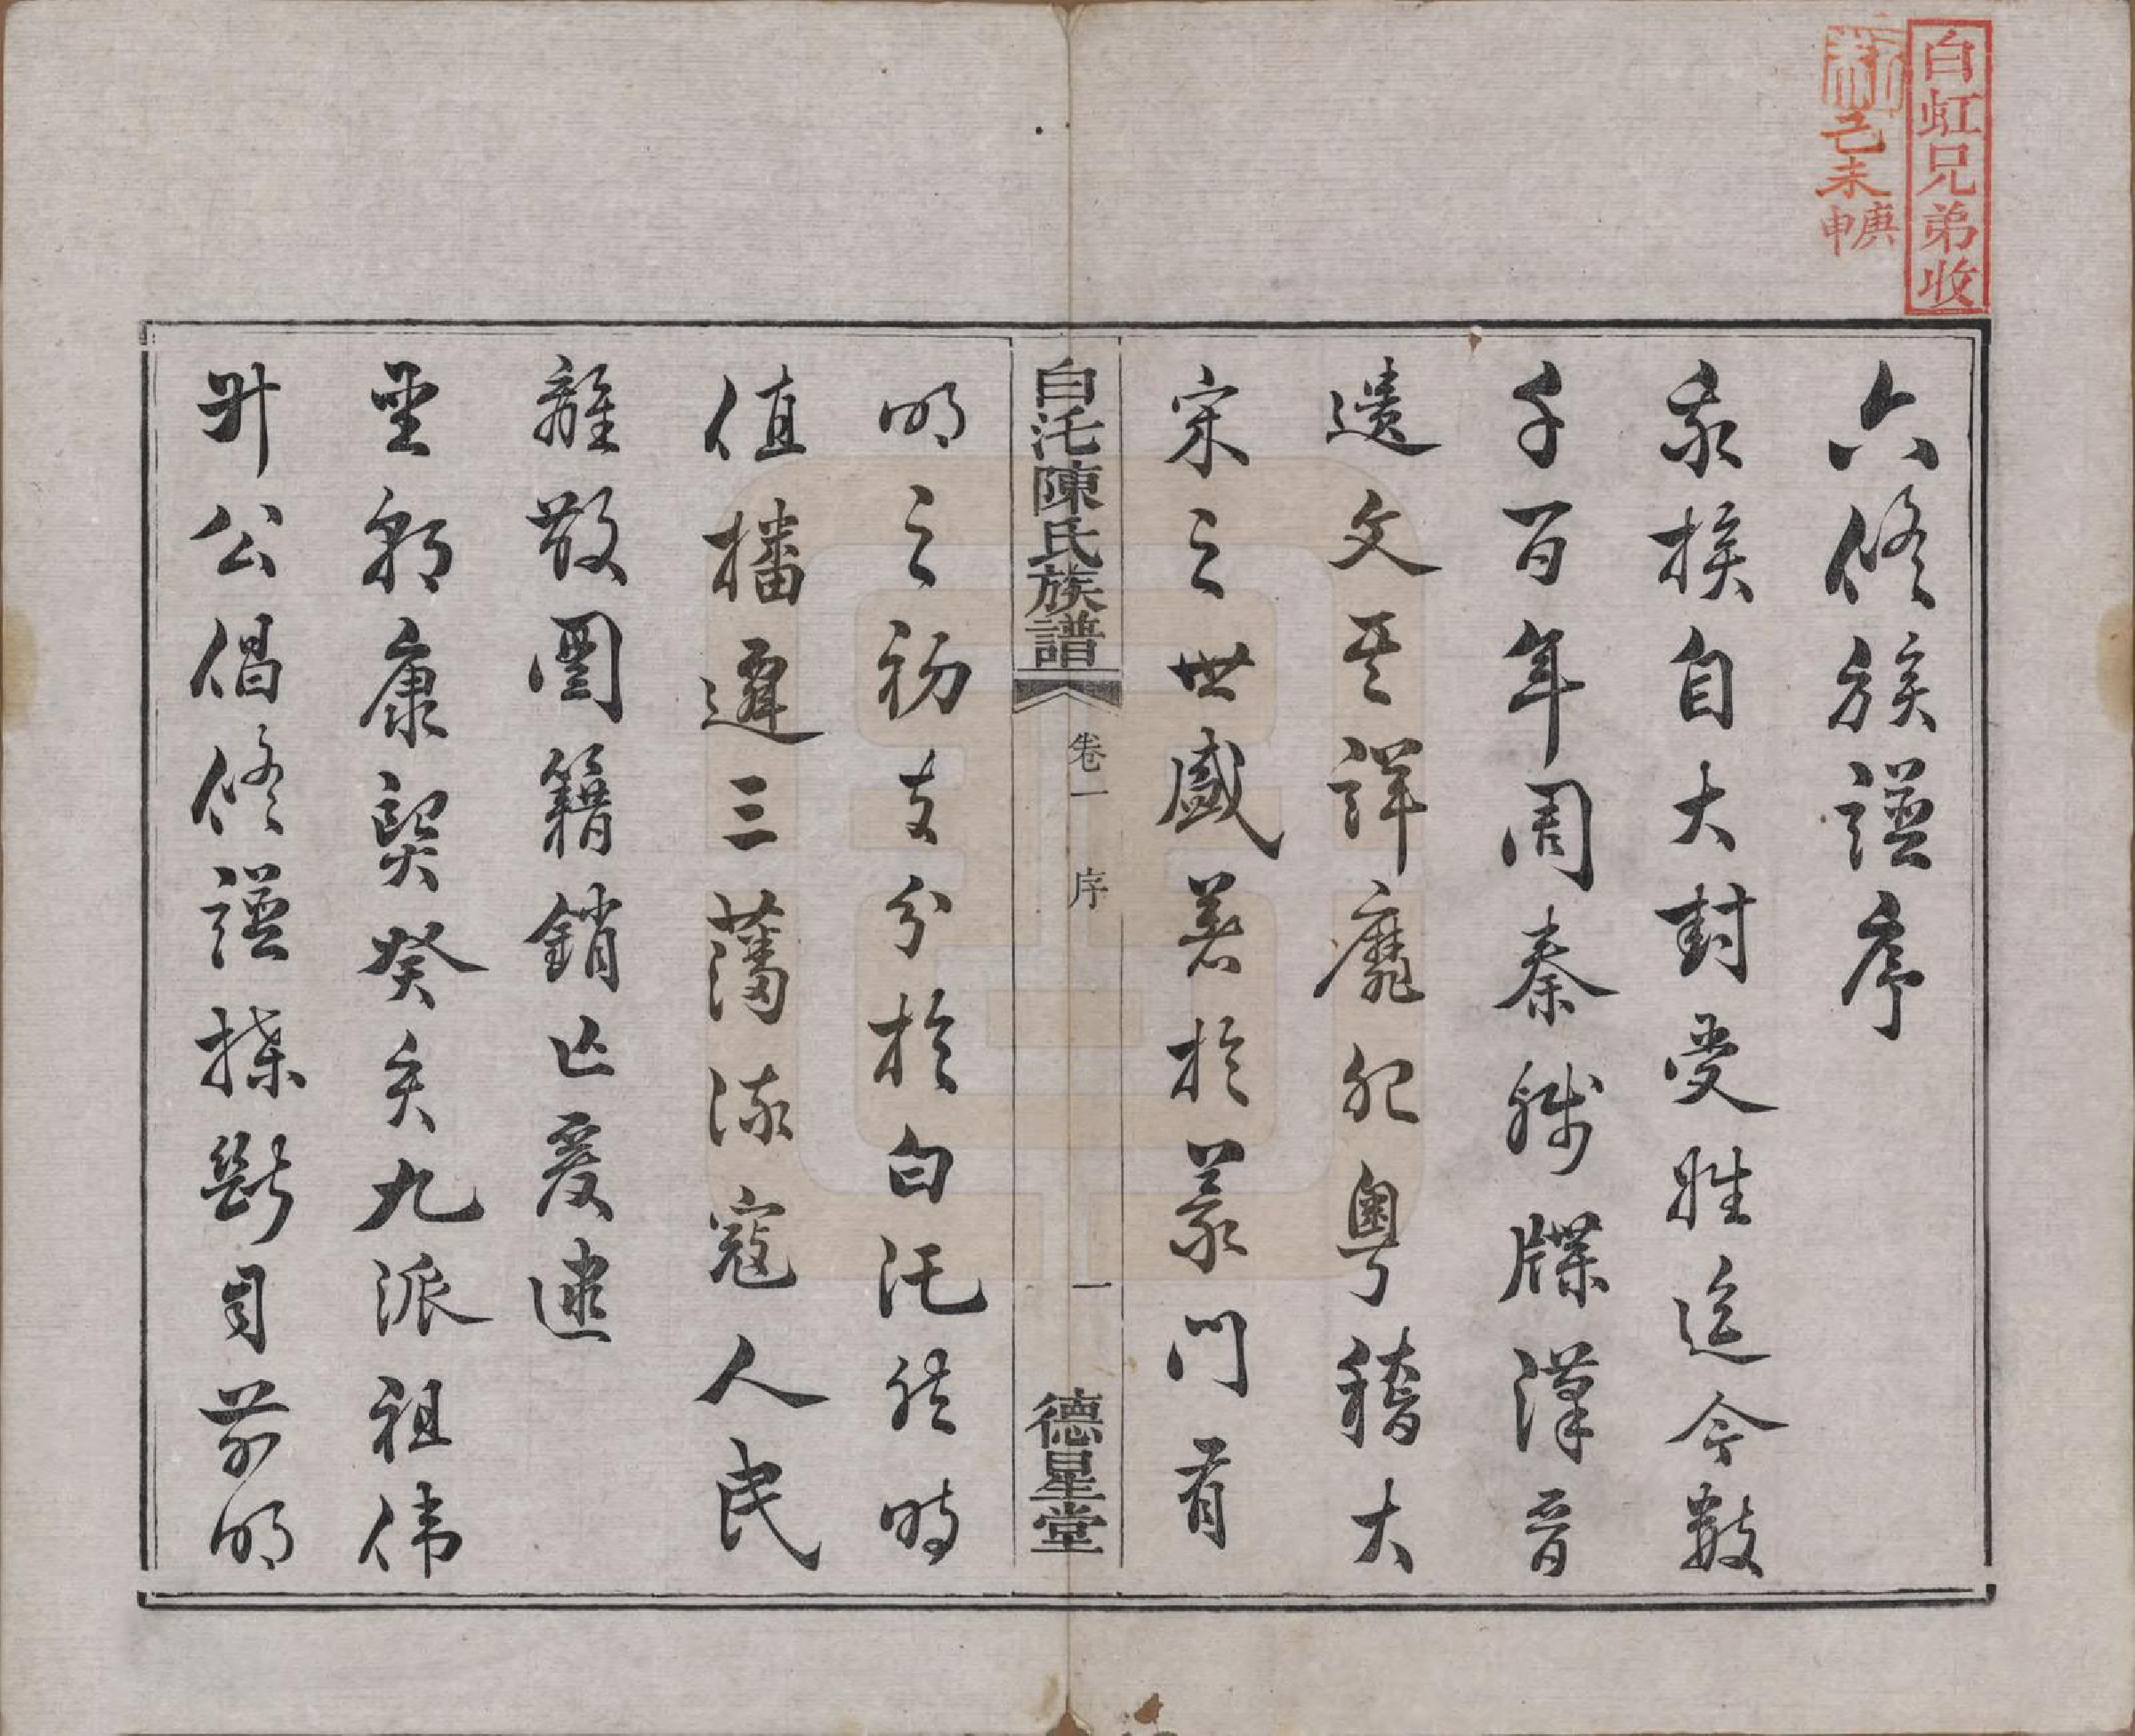 白虹兄弟收
己未
庚申
六修族譜序
我族自大封受姓迄今數
千百年周秦殘牒漢晉
遺文其詳靡紀粵稽大
宋之世盛著於義門有
白沱陳氏族譜 卷一 序 一 德星堂
明之初支分於白沱然時
值播遷三藩流寇人民
離散圖籍銷亡爰逮
聖朝康熙癸亥九派祖偉
升公倡修譜牒斷自前明